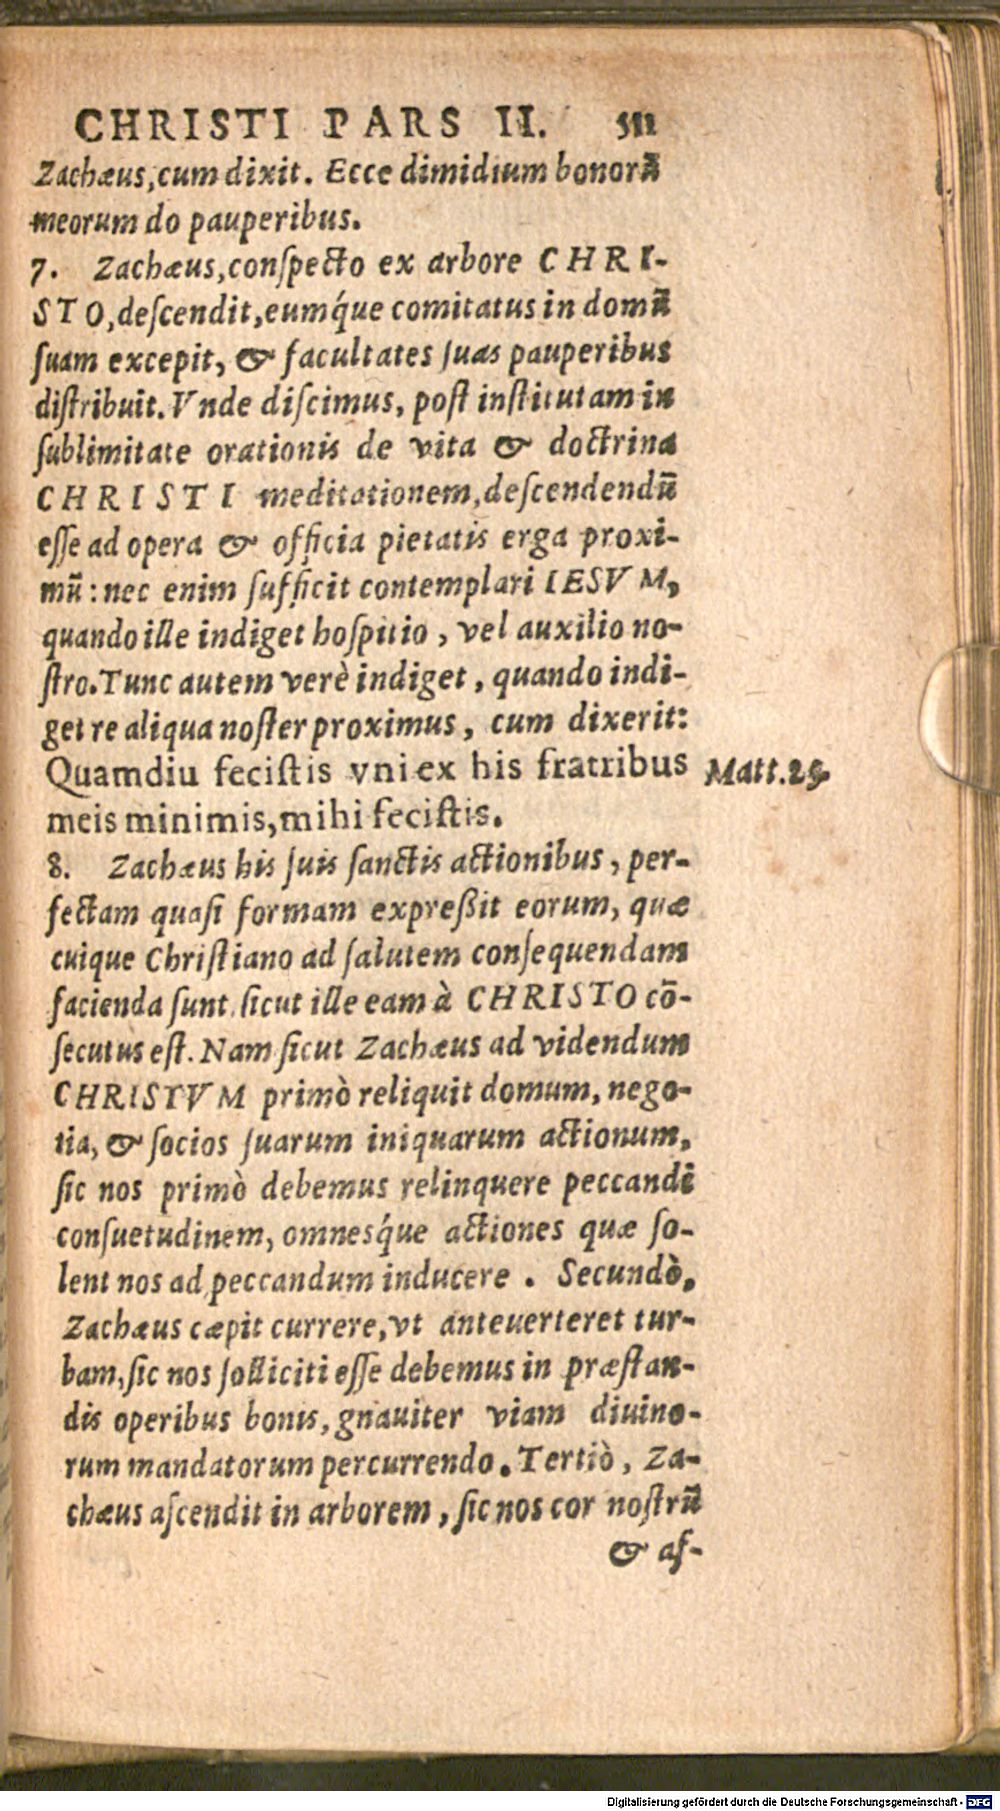 CHRISTI PARS II. 511
Zachæus, cum dixit. Ecce dimidium bonorũ
meorum do pauperibus.
7. Zachæus, conſpecto ex arbore CHRI-
STO, deſcendit, eumq́ue comitatus in domũ
ſuam excepit, & facultates ſuas pauperibus
diſtribuit. Vnde diſcimus, poſt inſtitutam in
ſublimitate orationis de vita & doctrina
CHRISTI meditationem, deſcendendũ
eſſe ad opera & officia pietatis erga proxi-
mũ: nec enim ſufficit contemplari IESVM,
quando ille indiget hoſpitio, vel auxilio no-
ſtro. Tunc autem verè indiget, quando indi-
get re aliqua noſter proximus, cum dixerit:
Quamdiu feciſtis vni ex his fratribus
meis minimis, mihi feciſtis.
Matt. 25.
8. Zachæus his ſuis ſanctis actionibus, per-
fectam quaſi formam expreßit eorum, quæ
cuique Chriſtiano ad ſalutem conſequendam
facienda ſunt, ſicut ille eam à CHRISTO cõ-
ſecutus eſt. Nam ſicut Zachæus ad videndum
CHRISTVM primò reliquit domum, nego-
tia, & ſocios ſuarum iniquarum actionum,
ſic nos primò debemus relinquere peccandi
conſuetudinem, omneſq́ue actiones quæ ſo-
lent nos ad peccandum inducere. Secundò,
Zachæus cæpit currere, vt anteuerteret tur-
bam, ſic nos ſolliciti eſſe debemus in præſtan-
dis operibus bonis, gnauiter viam diuino-
rum mandatorum percurrendo. Tertiò, Za-
chæus aſcendit in arborem, ſic nos cor noſtrũ
& aſ-
Digitalisierung gefördert durch die Deutsche Forschungsgemeinschaft - DFG